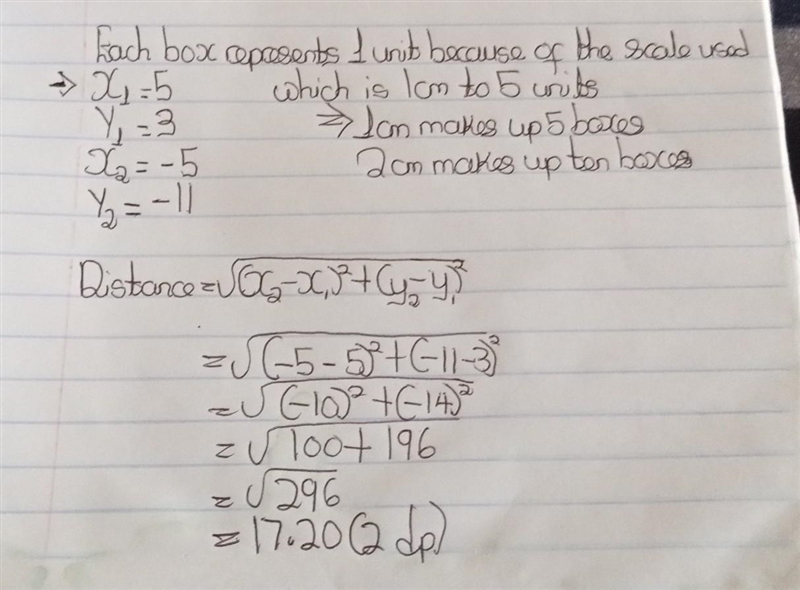 Each box represents 1 unit because of the scale used
⇒ x₁ = 5 which is 1cm to 5 units
y₁ = 3 ⇒ 1cm makes up 5 boxes
x₂ = -5 2cm makes up ten boxes
y₂ = -11
Distance = √(x₂-x₁)²+(y₂-y₁)²
= √(-5-5)²+(-11-3)²
= √(-10)²+(-14)²
= √100+196
= √296
= 17.20 (2 dp)